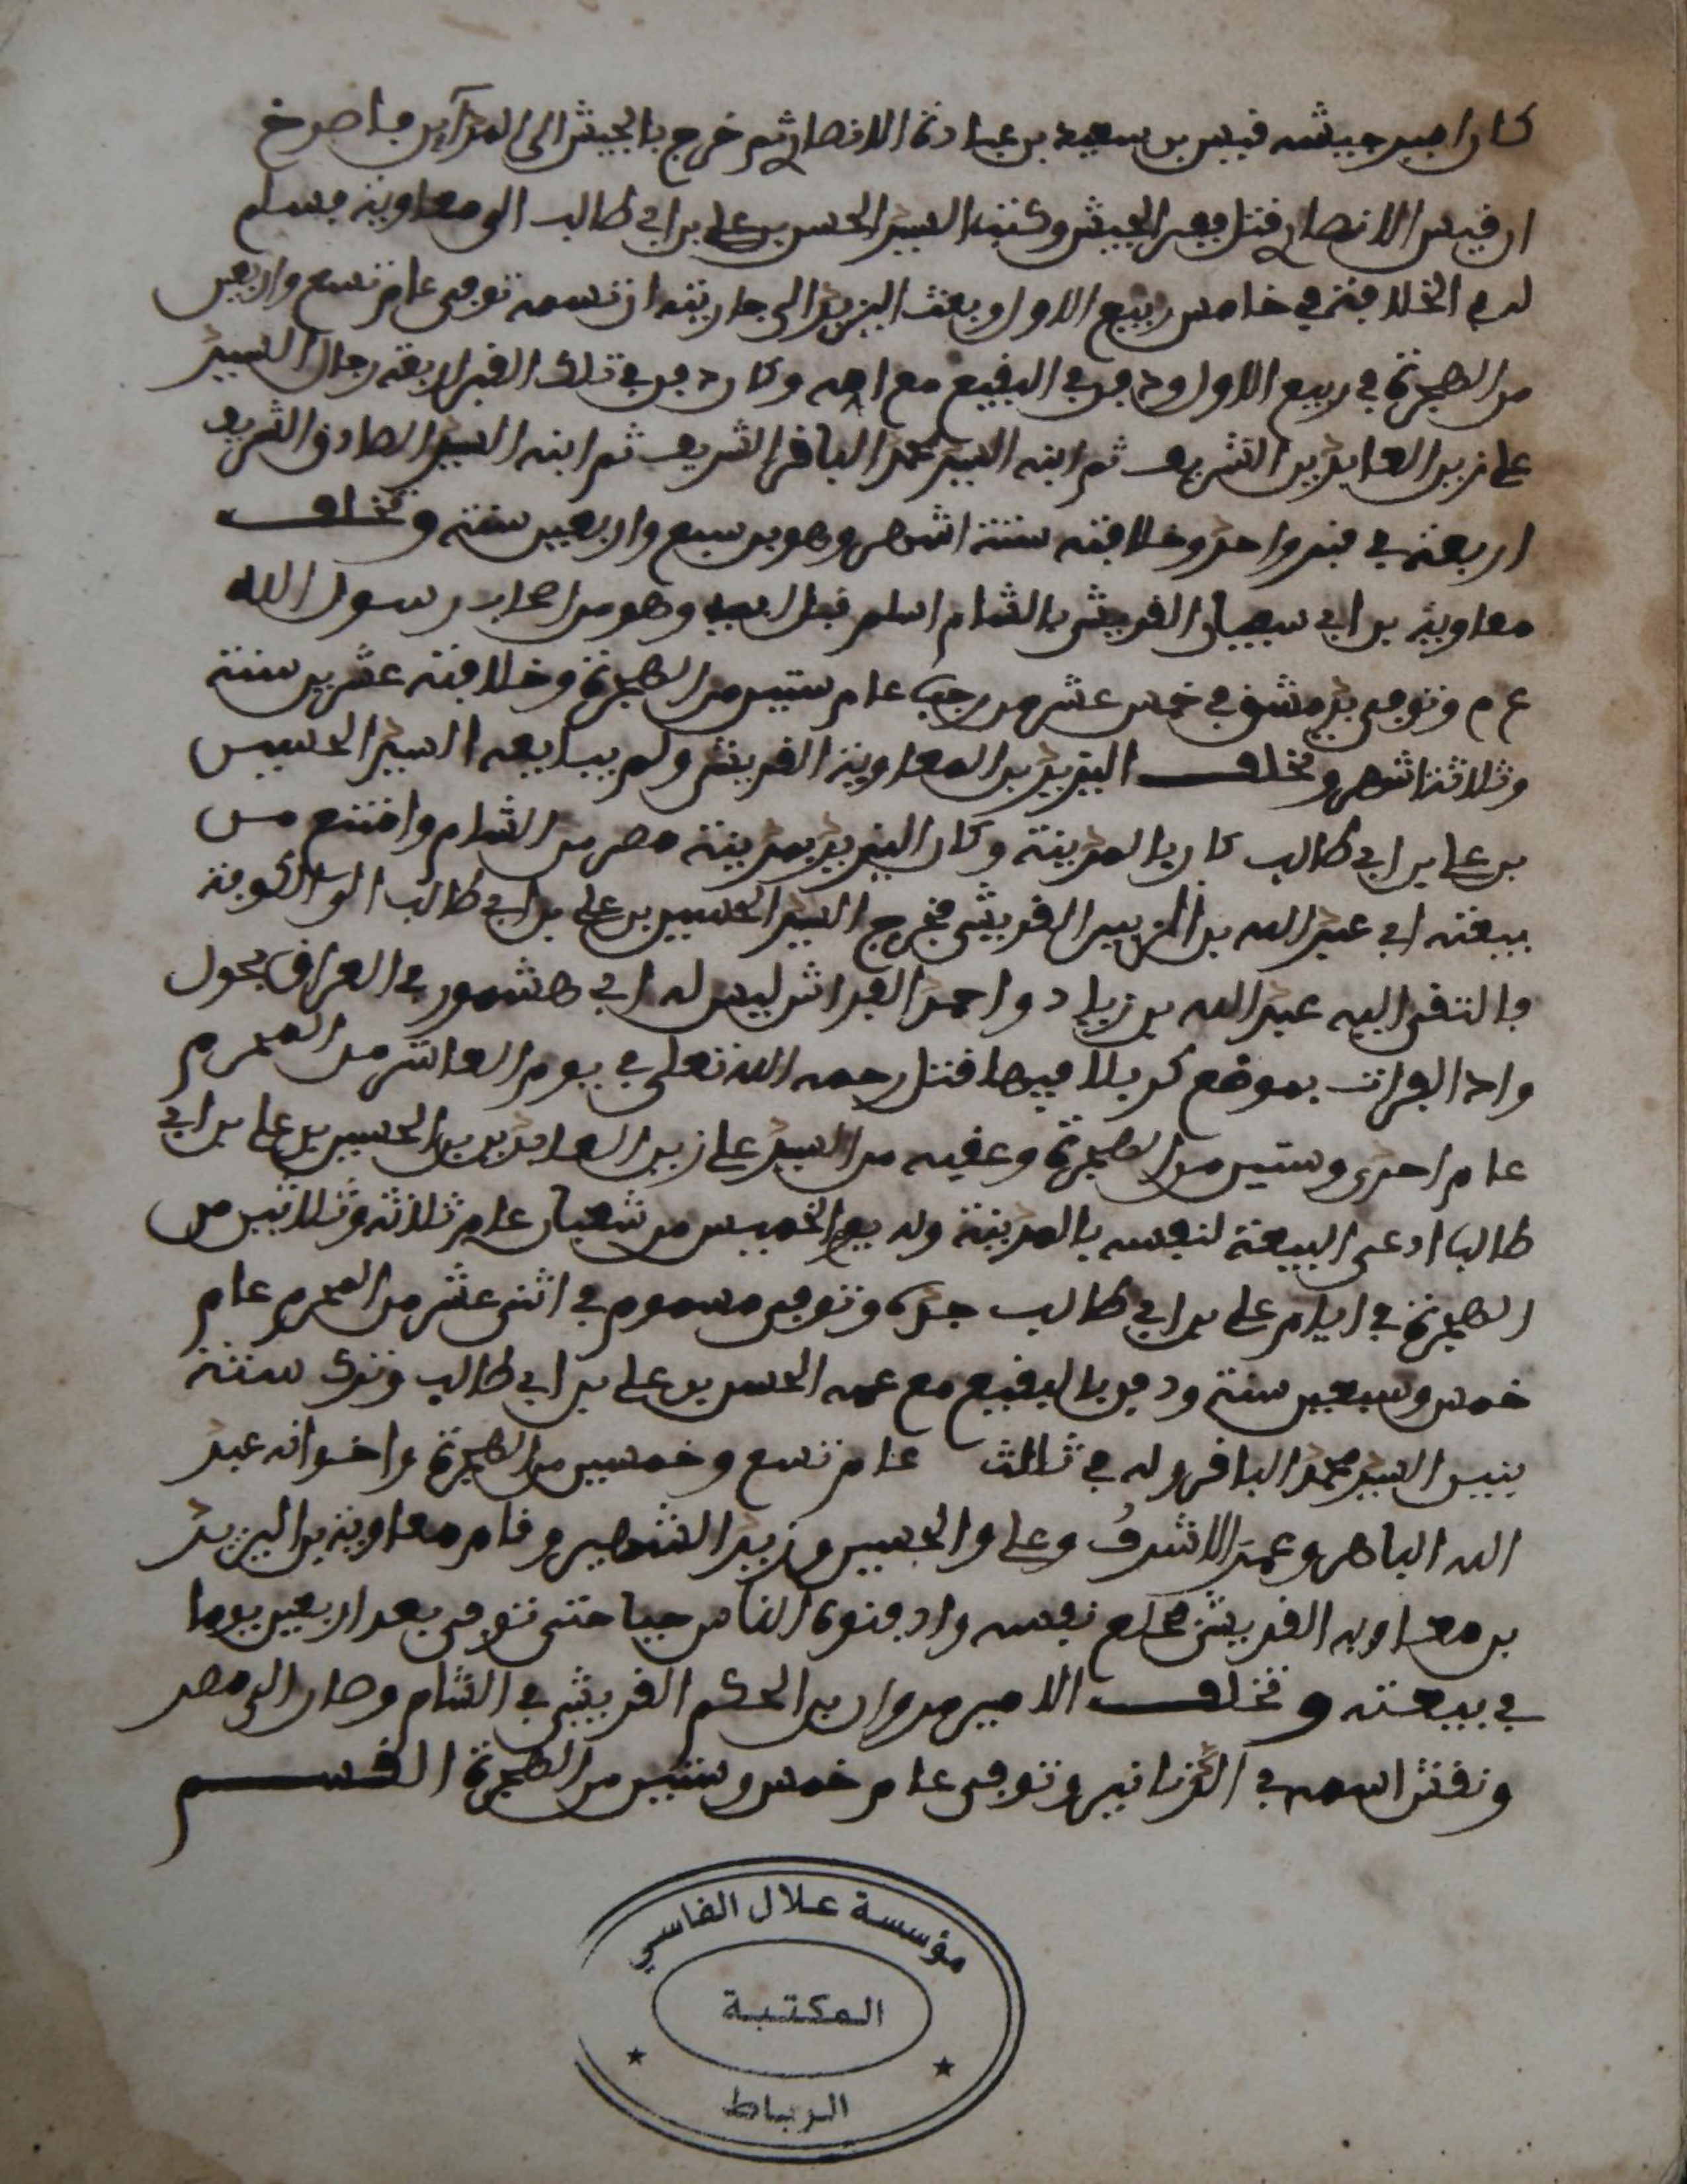 كان امير جيشه قيس بن سعيد بن عبادة الانصاري ثم خرج بالجيش الى المداين فاصرخ
ان قيس الانصاري قتل ففر الجيش وكتب السيد الحسن بن علي بن ابي طالب الى معاوية فسلم
له الخلافة في خامس ربيع الاول وبعث اليزيد الى جاريته ان تسمه توفى عام تسع واربعين
من الهجرة في ربيع الاول ودفن في البقيع مع امه وكان دفن في تلك القبر اربعة رجال السيد
علي زين العابدين الشريف ثم ابنه السيد محمد الباقر الشريف ثم ابنه السيد الصادق الشريف
اربعة في قبر واحد وخلافته ستة اشهر وهو بن سبع واربعين سنة وتخلف
معاوية بن ابي سفيان القريشي بالشام اسلم قبل ابيه وهو من اصحاب رسول الله
ع م وتوفى بدمشق في خمس عشر من رجب عام ستين من الهجرة وخلافته عشرين سنة
وثلاثة اشهر وتخلف اليزيد بن المعاوية القريشي ولم يبايعه السيد الحسين
بن علي بن ابي طالب كان بالمدينة وكان اليزيد بمدينة مصر من الشام وامتنع من
بيعته ابي عبد الله بن الزبير القريشي فخرج السيد الحسين بن علي بن ابي طالب الى الكوفة
فالتقى اليه عبد الله بن زياد واحمد الفراش ليس له ابي هشمور في العراق بحول
واد الفرات بموضع كربلا فيها قتل رحمه الله تعلى في يوم العاشر من المحرم
عام احدى وستين من الهجرة وعقبه من السيد علي زين العابدين بن الحسين بن علي بن ابي
طالب ادعى البيعة لنفسه بالمدينة ولد يوم الخميس من شعبان عام ثلاثة وثلاثين من
الهجرة في ايام علي بن ابي طالب جده وتوفى مسموم في اثنى عشر من المحرم عام
خمس وسبعين سنة ودفن بالبقيع مع عمه الحسن بن علي بن ابي طالب وترك ستة
بنين السيد محمد الباقر ولد في ثالث عام تسع وخمسين من الهجرة واخوانه عبد
الله الباهر وعمر الاشرف وعلي والحسين وزيد الشهير وقام معاوية بن اليزيد
بن معاوية القريشي فخلع نفسه وادفنوه الناس حيا حتى توفى بعد اربعين يوما
في بيعته وتخلف الامير مروان بن الحكم القريشي في الشام وصار الى مصر
ونقش اسمه في الدنانير وتوفى عام خمس وستين من الهجرة القسم
مؤسسة علال الفاسي
المكتبة
الرباط